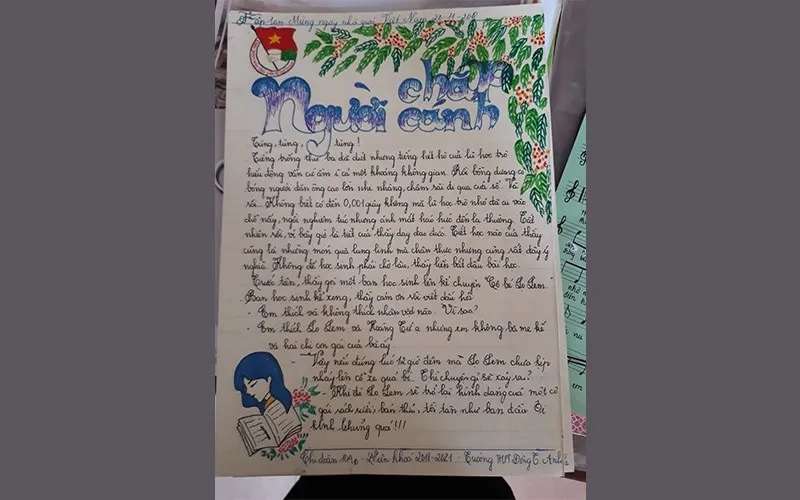 Tập san Mừng ngày nhà giáo Việt Nam 20-11
Người chắp cánh
Tùng, tùng, tùng!
Tiếng trống thứ ba đã dứt nhưng tiếng hét hò của lũ học trò
hiếu động vẫn cứ ầm ĩ cả một khoảng không gian. Rồi bỗng dưng có
bóng người đàn ông cao lớn nhẹ nhàng, chậm rãi đi qua cửa sổ. Và
rồi... Không biết có đến 0,001 giây không mà lũ học trò nhỏ đã ai vào
chỗ nấy, ngồi nghiêm túc nhưng ánh mắt háo hức đến lạ thường. Tất
nhiên rồi, vì bây giờ là tiết của thầy dạy đạo đức. Tiết học nào của thầy
cũng là những món quà lung linh mà chân thực nhưng cũng rất đầy ý
nghĩa. Không để học sinh phải chờ lâu, thầy liền bắt đầu bài học.
Trước tiên, thầy gọi một bạn học sinh lên kể chuyện Cô bé Lọ Lem.
Bạn học sinh kể xong, thầy cảm ơn và viết câu hỏi
- Em thích và không thích nhân vật nào. Vì sao?
- Em thích Lọ Lem và Hoàng Tử ạ nhưng em không bà mẹ kế
và hai chị con gái của bà ấy
- Vậy nếu đúng lúc 12 giờ đêm mà Lọ Lem chưa kịp
nhảy lên cỗ xe quả bí. Thì chuyện gì sẽ xảy ra?
- Khi đó Lọ Lem sẽ trở lại hình dạng của một cô
gái rách rưới, bẩn thỉu, tồi tàn như ban đầu. Ôi
kinh khủng quá!!!
Chi đoàn - Niên khoá 2018-2021 - Trường THPT Đông